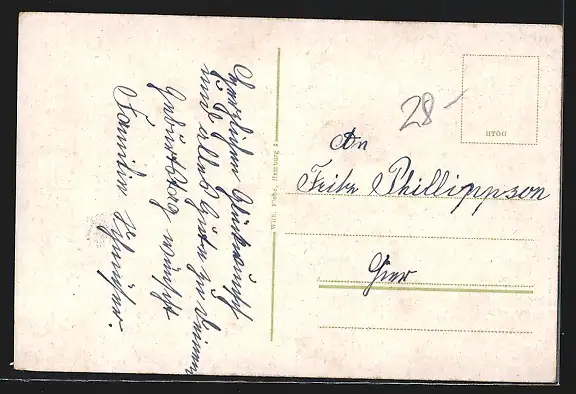 Herzlichen Glückwunsch
und alles Gute zu Deinem
Geburtstag wünscht
Familie
28-
An
Fritz Phillippson
Hier
HTOG
Hamburg 3